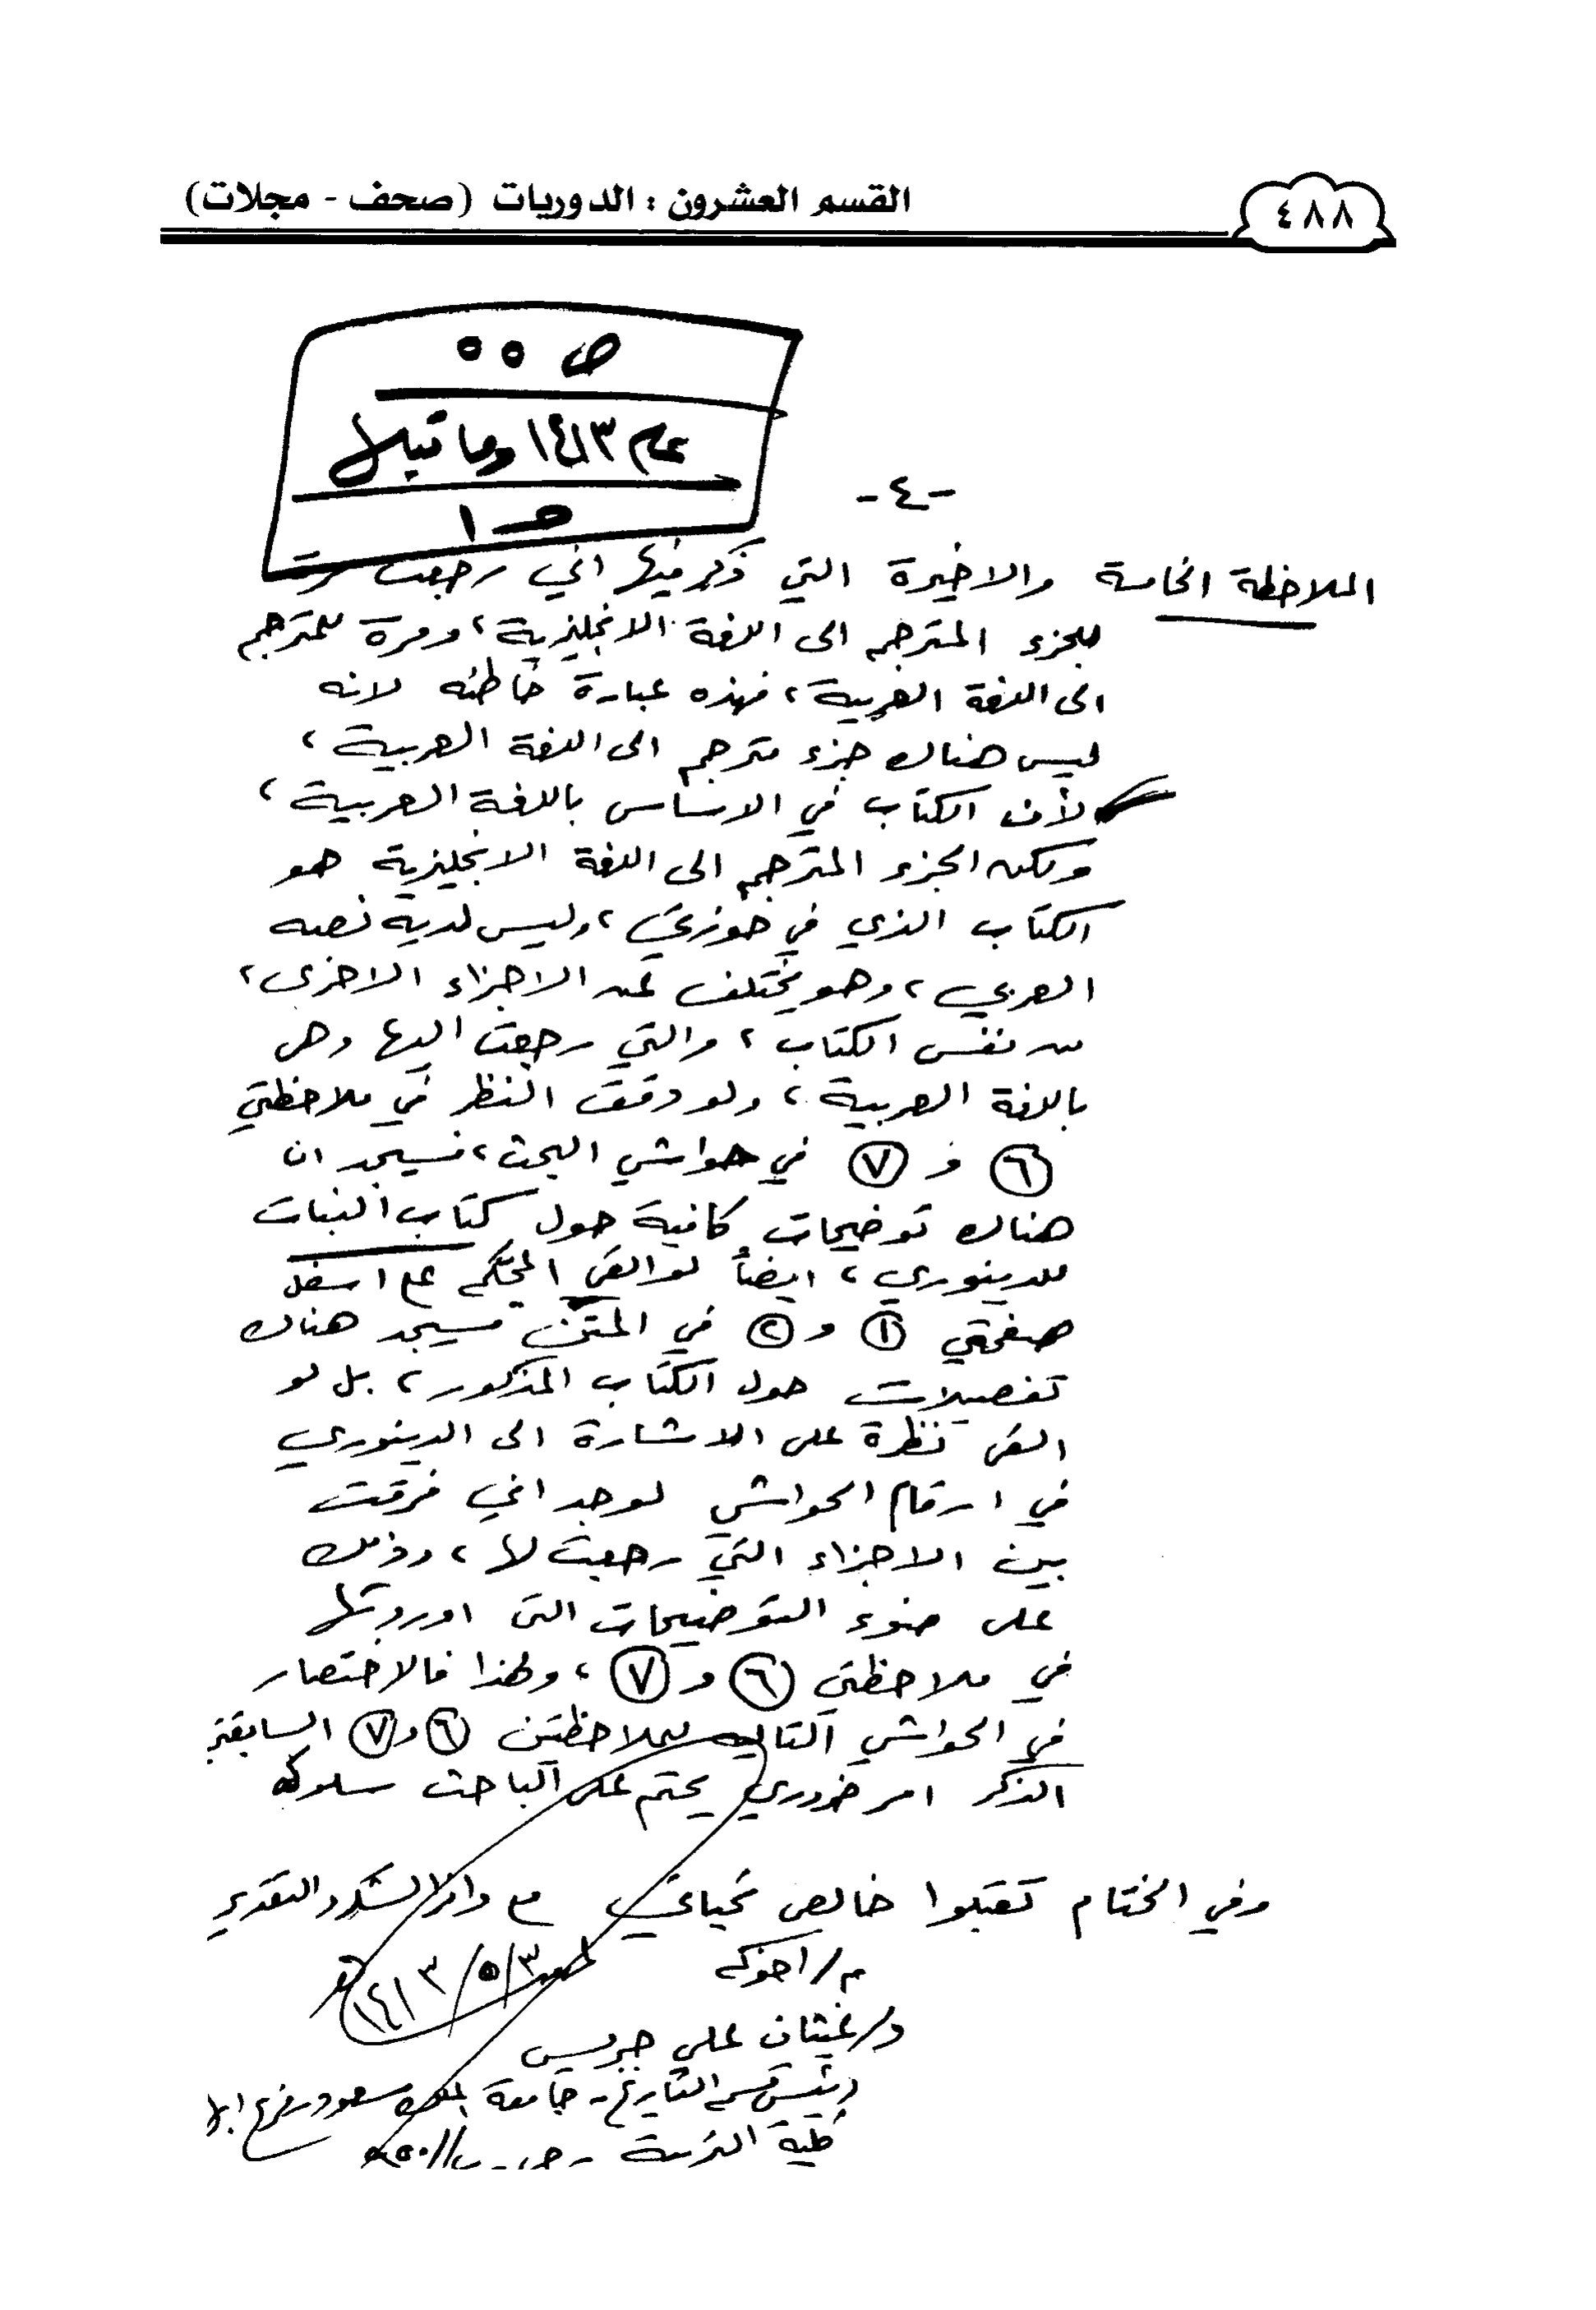 ٤٨٨
القسم العشرون : الدوريات (صحف - مجلات)
ص ٥٥
عام ١٤١٣ وما قبل
ص ١
-٤-
الملاحظة الخامسة والاخيرة التي ذكر فيها اني رجعت مرة
للجزء المترجم الى اللغة الانجليزية، ومرة للمترجم
الى اللغة العربية، فهذه عبارة خاطئه لانه
ليس هناك جزء مترجم الى اللغة العربية،
لأن الكتاب في الاساس باللغة العربية،
ولكن الجزء المترجم الى اللغة الانجليزية هو
الكتاب الذي في حوزتي، وليس لديه نصه
العربي، وهو يختلف عن الاجزاء الاخرى،
من نفس الكتاب، والتي رجعت اليها وهي
باللغة العربية، ولو دقق النظر في ملاحظتي
٦ و ٧ في حواشي البحث، فسيجد ان
هناك توضيحات كافية حول كتاب النبات
للدينوري، ايضاً لو القى المحكم على اسفل
صفحتي ١ و ٢ في المتن فسيجد هناك
تفصيلات حول الكتاب المذكور، بل لو
القى نظرة على الاشارة الى الدينوري
في ارقام الحواشي لوجد اني فرقت
بين الاجزاء التي رجعت لها، وذلك
على ضوء التوضيحات التي اوردتها
في ملاحظتي ٦ و ٧، ولهذا فالاختصار
في الحواشي التاليه للملاحظتين ٦ و ٧ السابقتي
الذكر امر ضروري يحتم على الباحث سلوكه
وفي الختام تقبلوا خالص تحياتي مع وافر الشكر والتقدير
اخوكم
٣/٥/١٤١٣هـ
د/ غيثان علي جريس
رئيس قسم التاريخ - جامعة الملك سعود فرع ابها
كلية التربية -